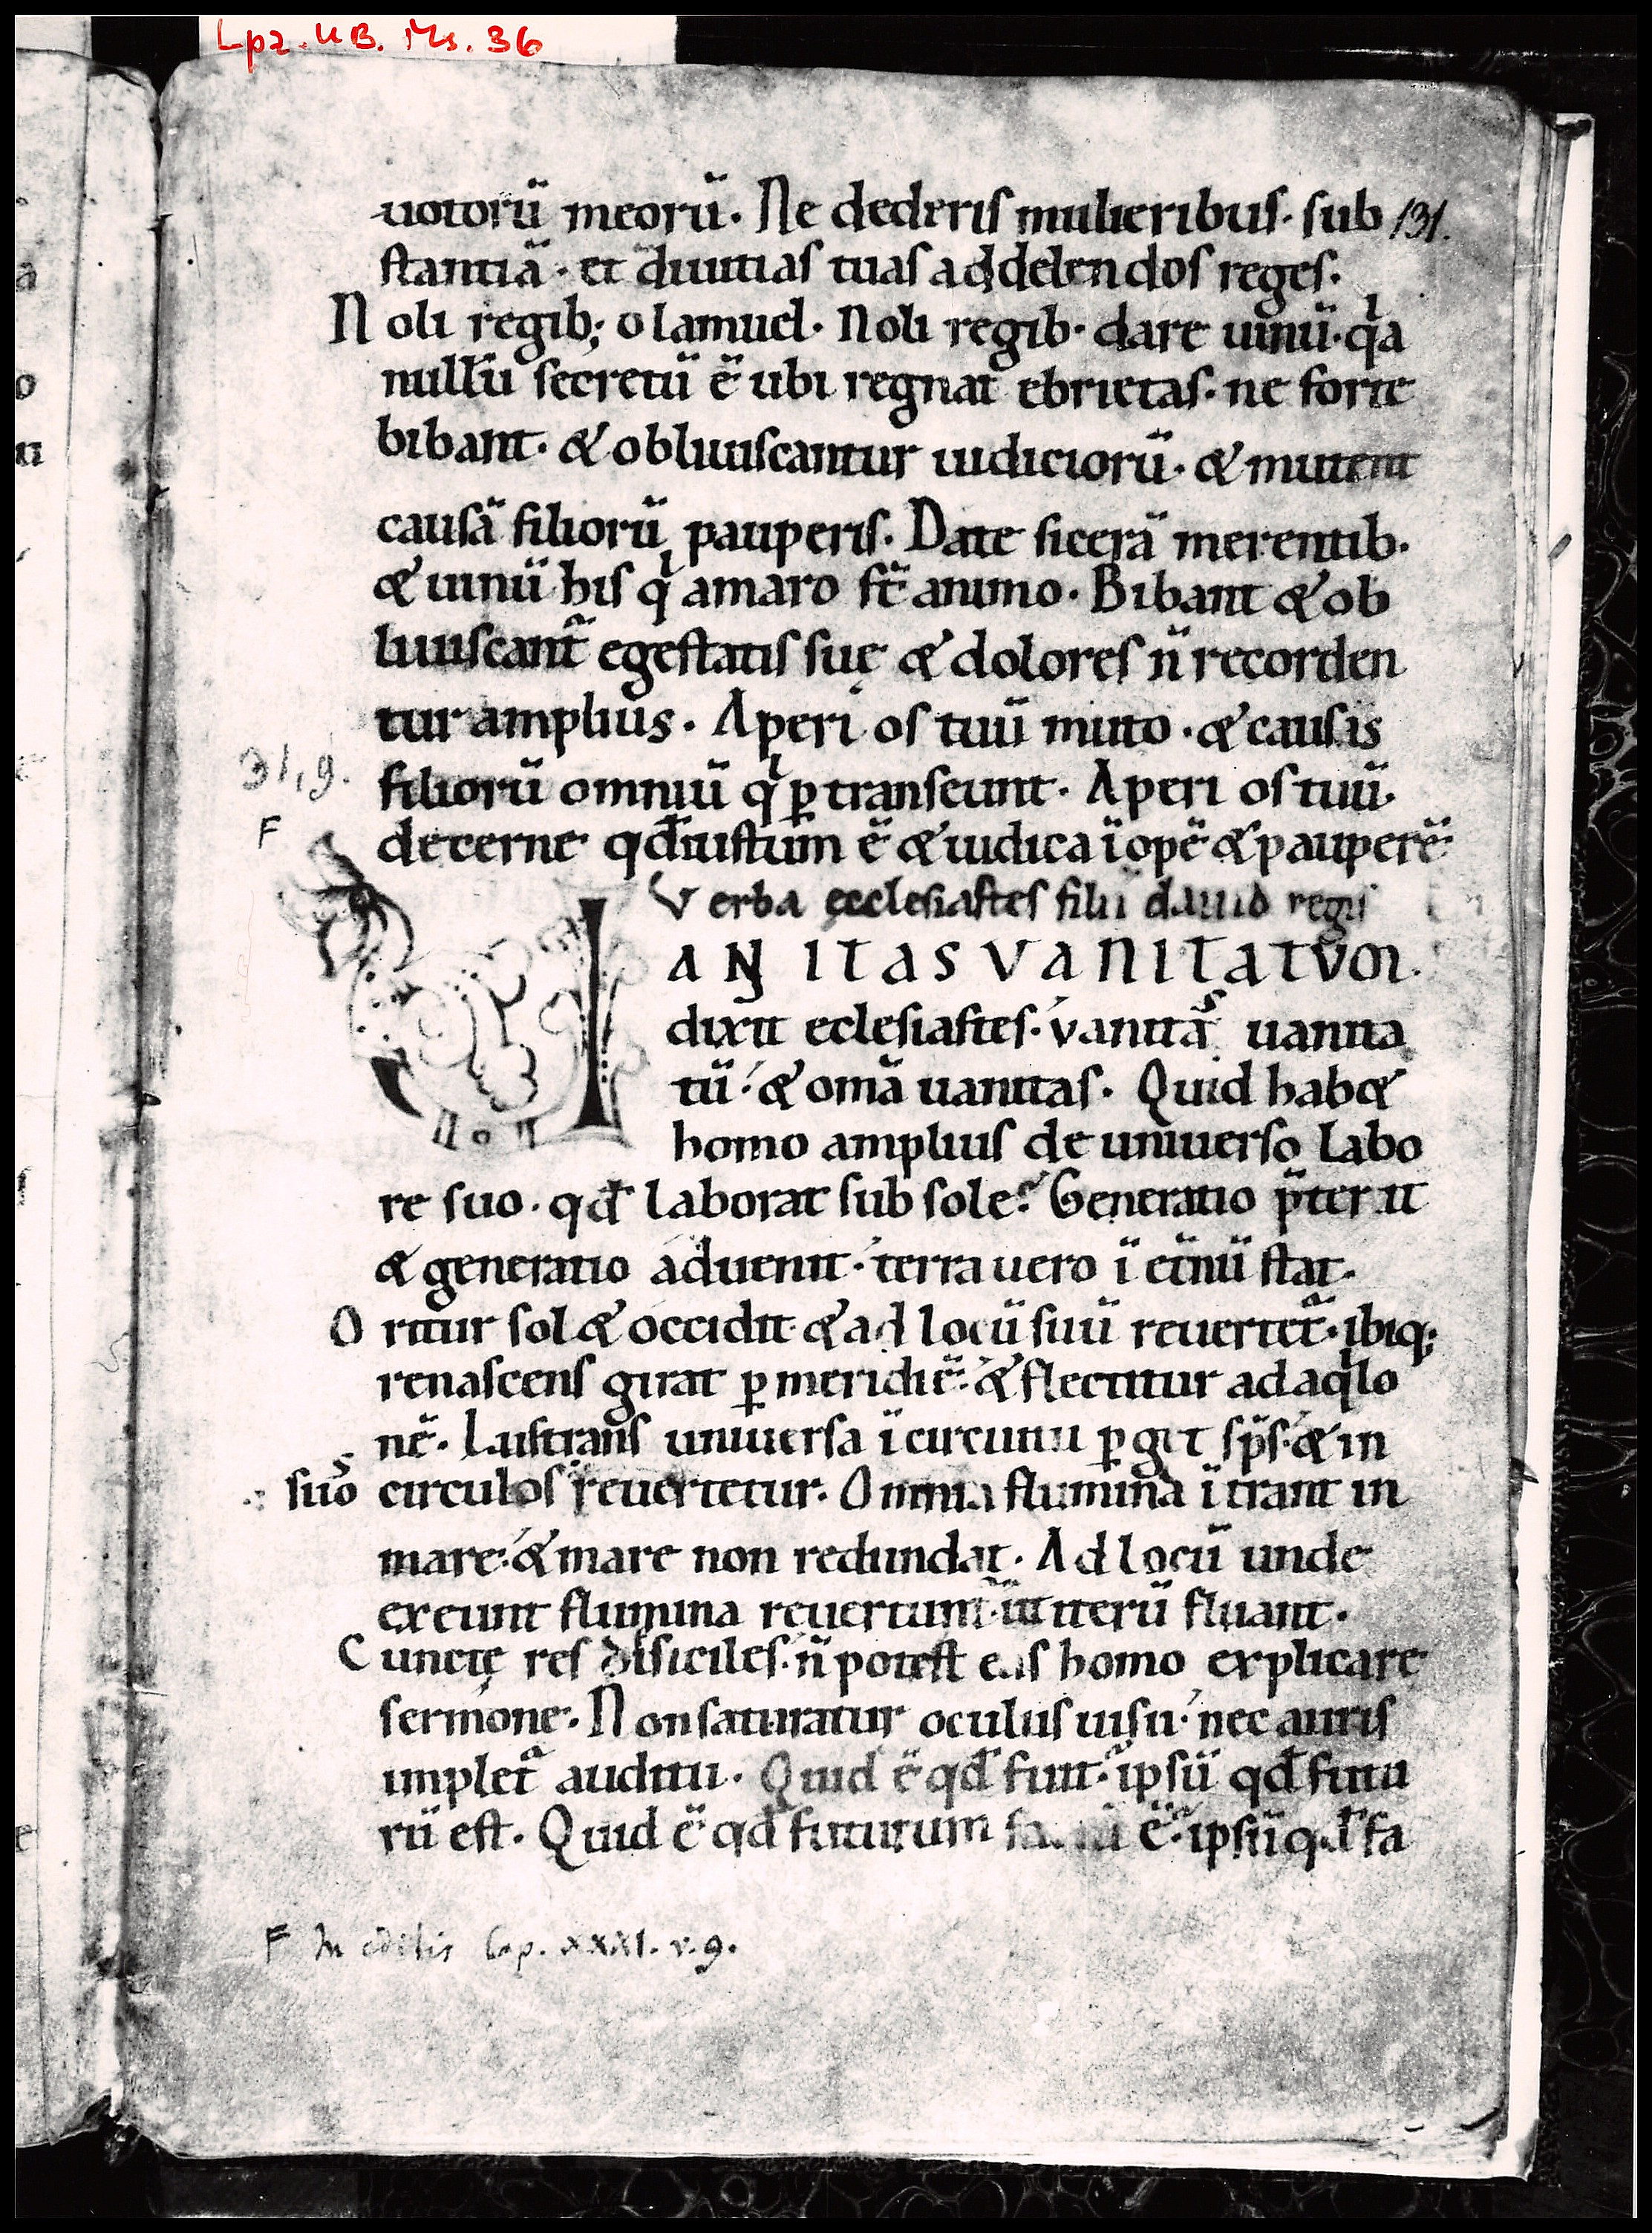 Lpz. UB. Ms. 36
uotorū meorū. Ne dederis mulieribus. sub 131.
stantiā. et diuitias tuas ad delendos reges.
Noli regib; o lamuel. Noli regib. dare uinū. qͥa
nullū secretū ē ubi regnat ebrietas. ne forte
bibant. & obliuiscantur iudiciorū. & mutent
causā filiorū pauperis. Date sicerā merentib.
& uinū his qͥ amaro st̄ animo. Bibant & ob
liuiscant᷑ egestatis suę & dolores n̄ recorden
tur amplius. Aperi os tuū muto. & causis
31,9.
filiorū omniū qͥ ꝑtranseunt. Aperi os tuū
F
decerne qd̄ iustum ē & iudica īopē & pauperē
Verba ecclesiastes filii dauid regis
VANITAS VANITATUM.
dixit eclesiastes. vanitas uanita
tū. & om̄a uanitas. Quid hab&
non
homo amplius de uniuerso labo
re suo. qd̄ laborat sub sole? Generatio p̄terit
& generatio aduenit. terra uero ī et̄nū stat.
Oritur sol & occidit & ad locū suū reuertet᷑. ibiq;
renascens girat ꝑ meridiē. & flectitur ad aqͥlo
nē. Lustrans uniuersa ī circuitu ꝑgit sp̄s. & in
suos circulos reuertetur. Omnia flumina ītrant in
mare. & mare non redundat. Ad locū unde
exeunt flumina reuertunt᷑. ut iterū fluant.
Cunctę res difficiles. n̄ potest eas homo explicare
sermone. Non saturatur oculus uisu. nec auris
implet᷑ auditu. Quid ē qd̄ fuit. ipsū qd̄ futu
rū est. Quid ē qd̄ futurum ē. ipsū qd̄ fa
F In editis Cap. XXXI. v. 9.